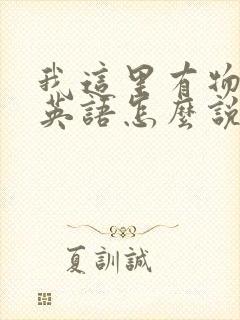 我這里有物
英語怎麼說
夏訓誠